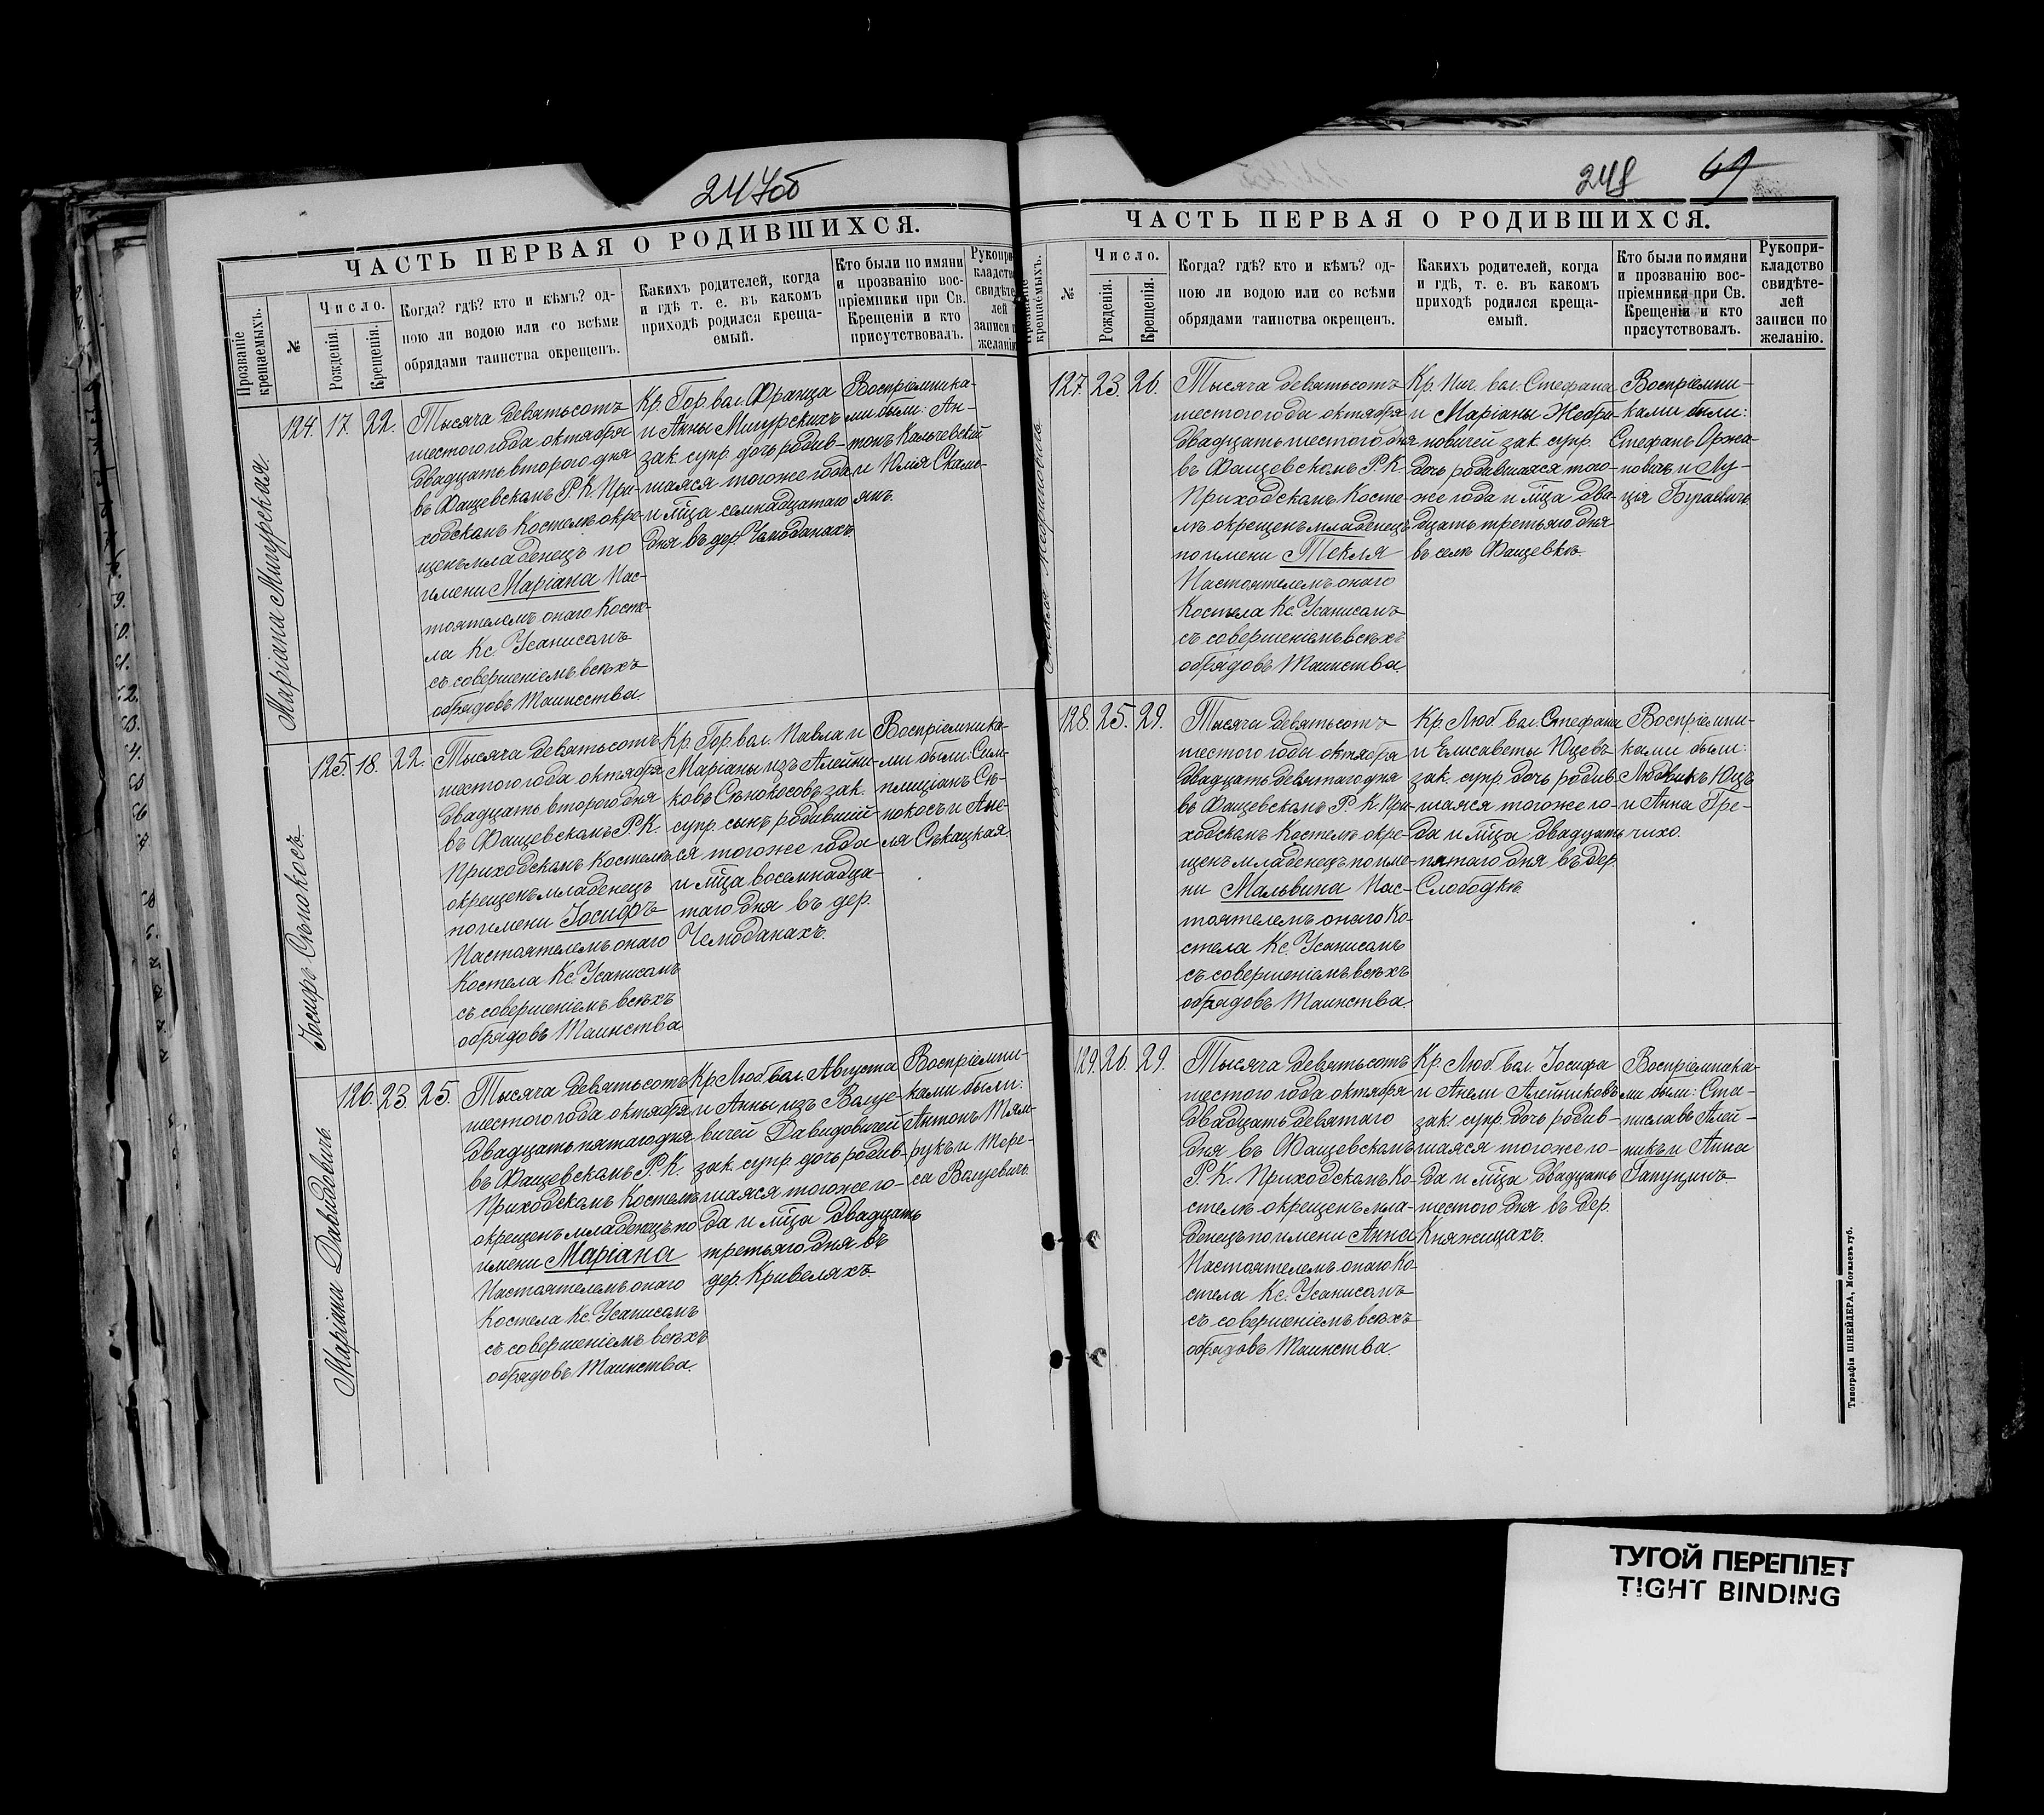 247об
ЧАСТЬ ПЕРВАЯ О РОДИВШИХСЯ.
Прозваніе крещаемыхъ.
№
Число.
Рожденія.
Крещенія.
Когда? гдѣ? кто и кѣмъ? од-
ною ли водою или со всѣми
обрядами таинства окрещенъ.
Какихъ родителей, когда
и гдѣ т. е. въ какомъ
приходѣ родился креща-
емый.
Кто были по имяни
и прозванію вос-
пріемники при Св.
Крещеніи и кто
присутствовалъ.
Рукопри-
кладство
свидѣте-
лей
записи по
желанію
Маріана Мигурская.
124. 17. 22.
Тысяча девятьсотъ
шестого года октября
двадцать второго дня
въ Фащевскомъ Р. К. При-
ходскомъ Костелѣ окре-
щенъ младенецъ по
имени Маріана Нас-
тоятелемъ онаго Косте-
ла Кс. Усанисомъ
съ совершеніемъ всѣхъ
обрядовъ Таинства.
Кр. Гор. вол. Франца
и Анны Мигурскихъ
зак. супр. дочь родив-
шаяся тогоже года
и м͠ца семнадцатаго
дня въ дер. Чемоданахъ.
Воспріемника-
ми были: Ан-
тонъ Кальчевскій
и Юлія Скаль-
янъ.
Іосифъ Сѣнокосъ.
125. 18. 22.
Тысяча девятьсотъ
шестого года октября
двадцать второго дня
въ Фащевскомъ Р. К.
Приходскомъ Костелѣ
окрещенъ младенецъ
по имени Іосифъ
Настоятелемъ онаго
Костела Кс. Усанисомъ
съ совершеніемъ всѣхъ
обрядовъ Таинства
Кр. Гор. вол. Павла и
Маріаны изъ Алейни-
ковъ Сѣнокосовъ зак.
супр. сынъ родившій-
ся тогоже года
и м͠ца восемнадца-
таго дня въ дер.
Чемоданахъ.
Воспріемника-
ми были: Сим-
плиціанъ Сѣ-
нокосъ и Ане-
ля Сѣкацкая.
Маріана Давидовичъ
126. 23. 25.
Тысяча девятьсотъ
шестого года октября
двадцать пятаго дня
въ Фащевскомъ Р. К.
Приходскомъ Костелѣ
окрещенъ младенецъ по
имени Маріана
Настоятелемъ онаго
Костела Кс. Усанисомъ
съ совершеніемъ всѣхъ
обрядовъ Таинства.
Кр. Люб. вол. Августа
и Анны изъ Валуе-
вичей Давидовичей
зак. супр. дочь родив-
шаяся тогоже го-
да и м͠ца двадцать
третьяго дня въ
дер. Кривеляхъ.
Воспріемни-
ками были:
Антонъ
и Тере-
са Валуевичъ.
248 69
ЧАСТЬ ПЕРВАЯ О РОДИВШИХСЯ.
крещаемыхъ.
№
Число.
Рожденія.
Крещенія.
Когда? гдѣ? кто и кѣмъ? од-
ною ли водою или со всѣми
обрядами таинства окрещенъ.
Какихъ родителей, когда
и гдѣ, т. е. въ какомъ
приходѣ родился креща-
емый.
Кто были по имяни
и прозванію вос-
пріемники при Св.
Крещеніи и кто
присутствовалъ.
Рукопри-
кладство
свидѣте-
лей
записи по
желанію.
127. 23. 26.
Тысяча девятьсотъ
шестого года октября
двадцать шестого дня
въ Фащевскомъ Р. К.
Приходскомъ Косте-
лѣ окрещенъ младенецъ
по имени Текля
Настоятелемъ онаго
Костела Кс. Усанисомъ
съ совершеніемъ всѣхъ
обрядовъ Таинства.
Кр. вол. Стефана
и Маріаны Жебри-
новичей зак. супр.
дочь родившаяся того-
же года и м͠ца два-
дцать третьяго дня
въ селѣ Фащевкѣ.
Воспріемни-
ками были:
Стефанъ Оржа-
новак и Лу-
ція
128. 25. 29.
Тысяча девятьсотъ
шестого года октября
двадцать девятаго дня
въ Фащевскомъ Р. К. При-
ходскомъ Костелѣ окре-
щенъ младенецъ по име-
ни Мальвина Нас-
тоятелемъ онаго Ко-
стела Кс. Усанисомъ
съ совершеніемъ всѣхъ
обрядовъ Таинства.
Кр. Люб. вол. Стефана
и Елисаветы Юцевъ
зак. супр. дочь родив-
шаяся тогоже го-
да и м͠ца двадцать
пятаго дня въ дер.
Слободкѣ.
Воспріемни-
ками были:
Людвикъ Юцъ
и Анна Гре-
чихо.
129. 26. 29.
Тысяча девятьсотъ
шестого года октября
двадцать девятаго
дня въ Фащевскомъ
Р. К. Приходскомъ Ко-
стелѣ окрещенъ мла-
денецъ по имени Анна
Настоятелемъ онаго Ко-
стела Кс. Усанисомъ
съ совершеніемъ всѣхъ
обрядовъ Таинства.
Кр. Люб. вол. Іосифа
и Анели Алейниковъ
зак. супр. дочь родив-
шаяся тогоже го-
да и м͠ца двадцать
шестого дня въ дер.
Княжицахъ.
Воспріемника-
ми были: Ста-
ниславъ Алей-
никъ и Анна
Гапуцинъ.
Типографія ШНЕЙДЕРА, Могилевъ губ.
ТУГОЙ ПЕРЕПЛЕТ
TIGHT BINDING